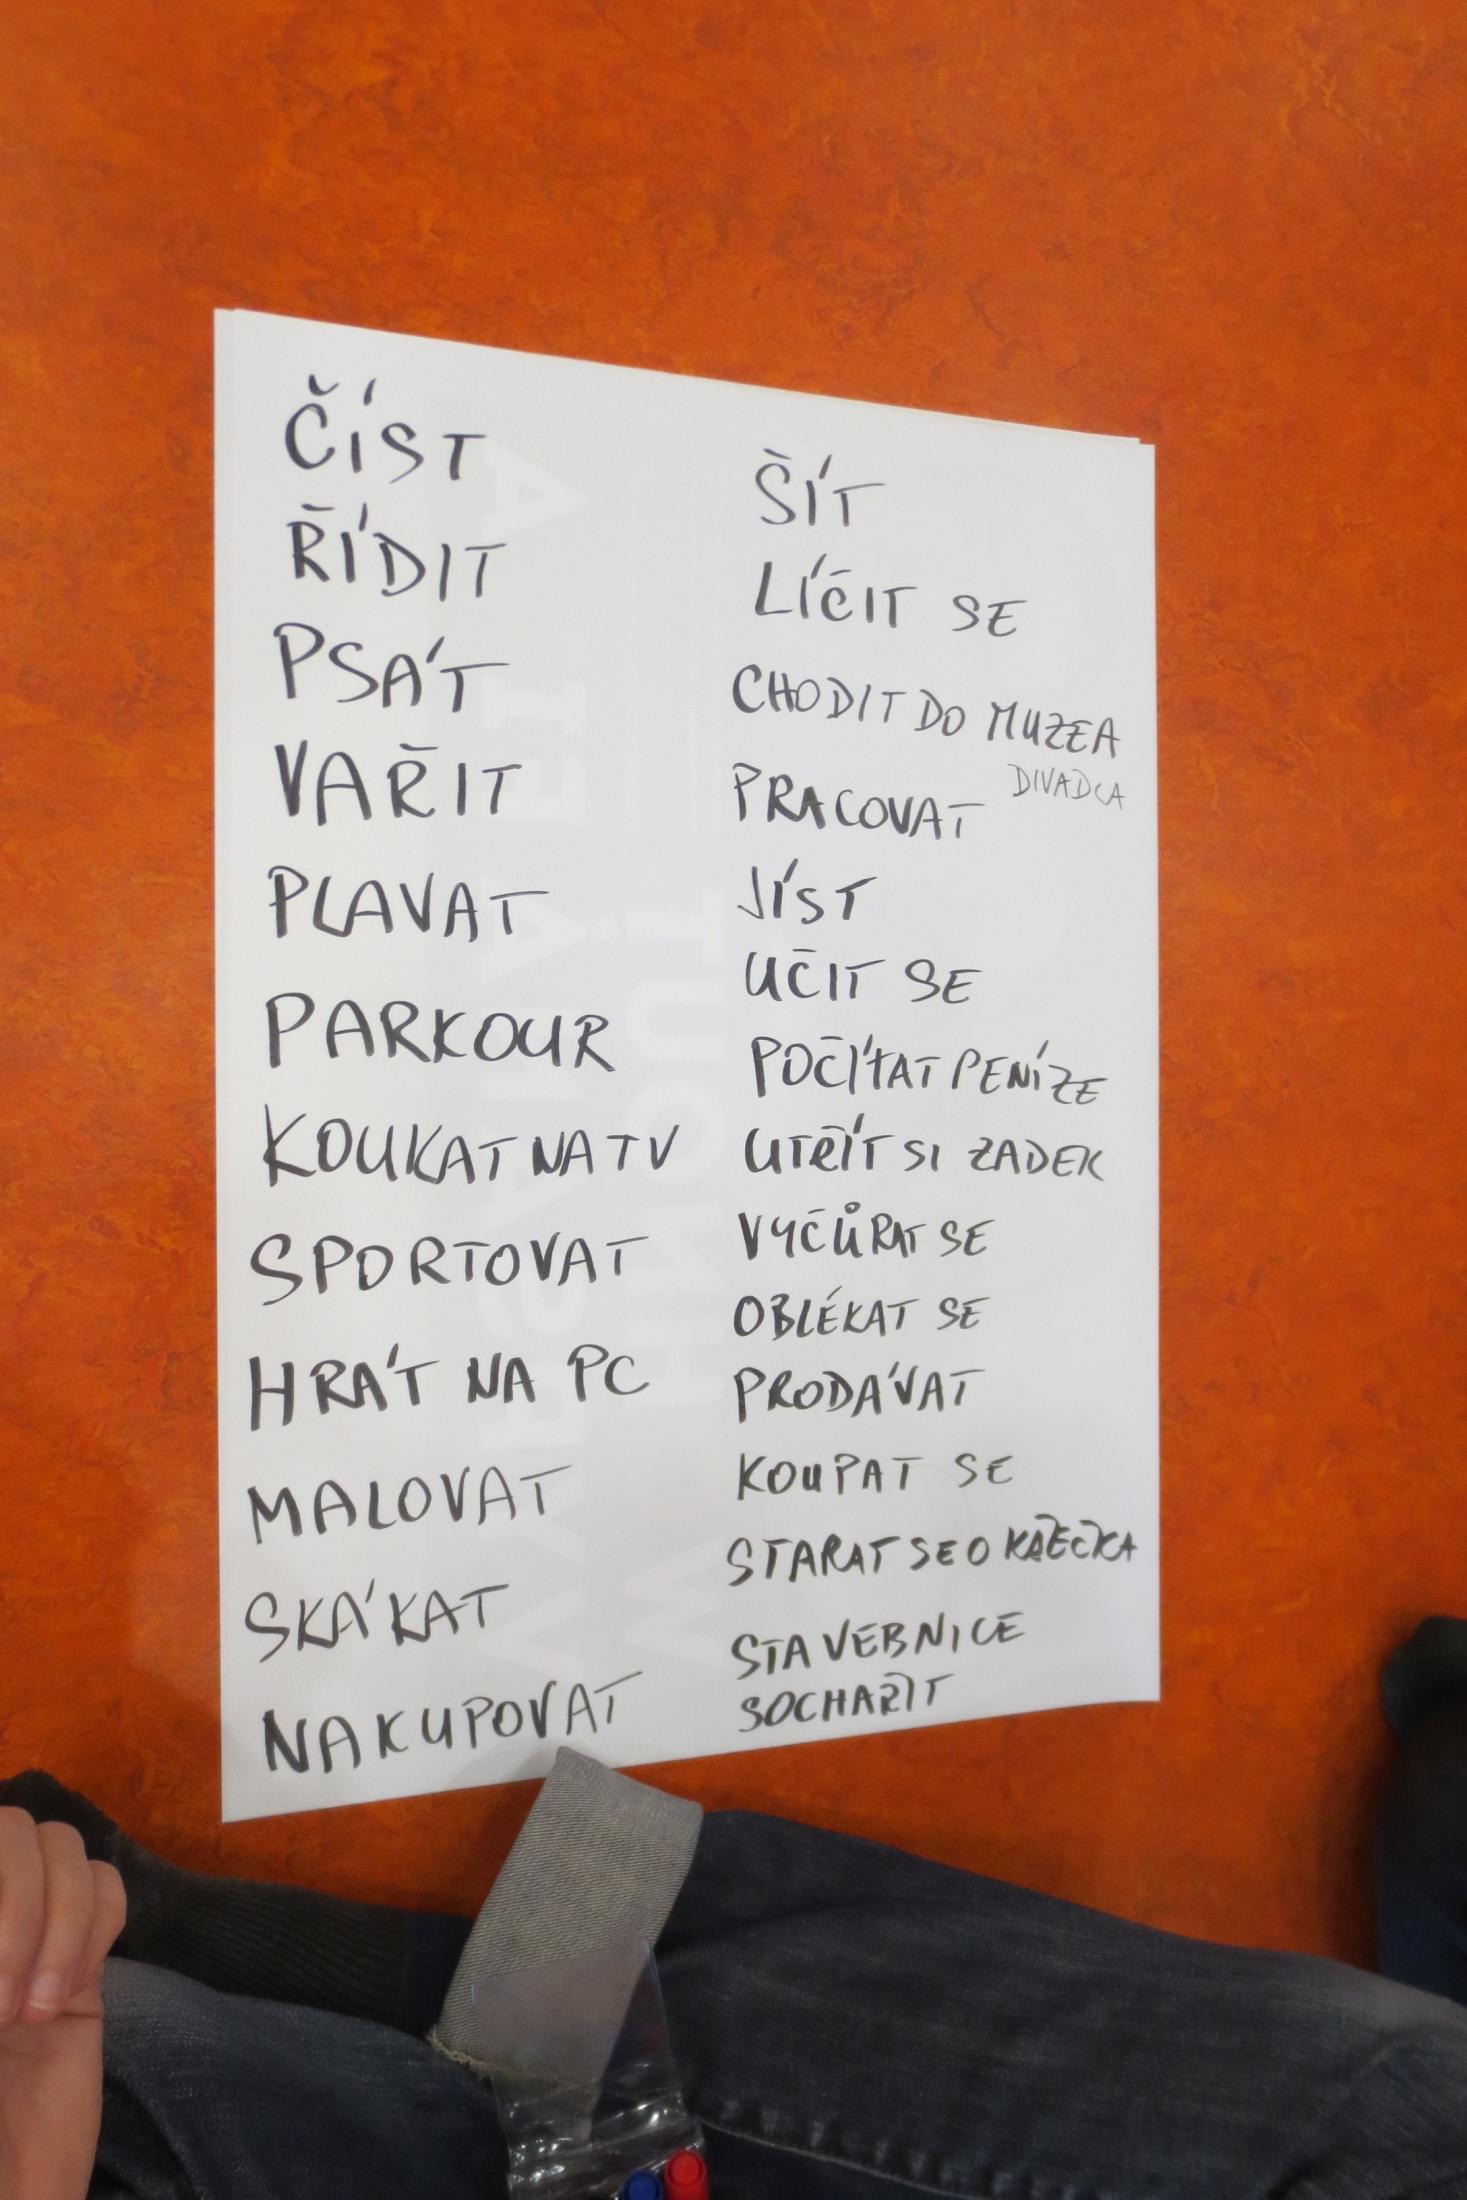 ČÍST
ŘÍDIT
PSÁT
VAŘIT
PLAVAT
PARKOUR
KOUKAT NA TV
SPORTOVAT
HRÁT NA PC
MALOVAT
SKÁKAT
NAKUPOVAT
ŠÍT
LÍČIT SE
CHODIT DO MUZEA
DIVADLA
PRACOVAT
JÍST
UČIT SE
POČÍTAT PENÍZE
UTŘÍT SI ZADEK
VYČŮRAT SE
OBLÉKAT SE
PRODÁVAT
KOUPAT SE
STARAT SE O
STAVEBNICE
SOCHAŘIT